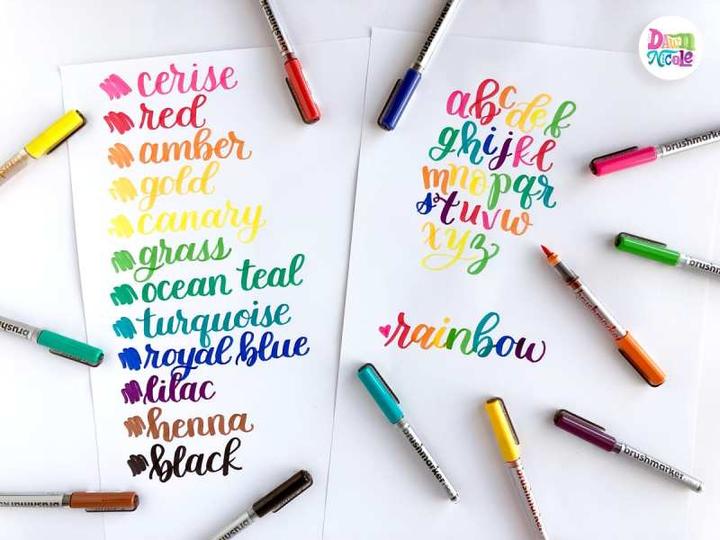 cerise
red
amber
gold
canary
grass
ocean teal
turquoise
royal blue
lilac
henna
black
abcdef
ghijkl
mnopqr
stuvw
xyz
rainbow
Dawn
Nicole
brushmarker
brushmarker
brushmarker
brushmarker
brushmarker